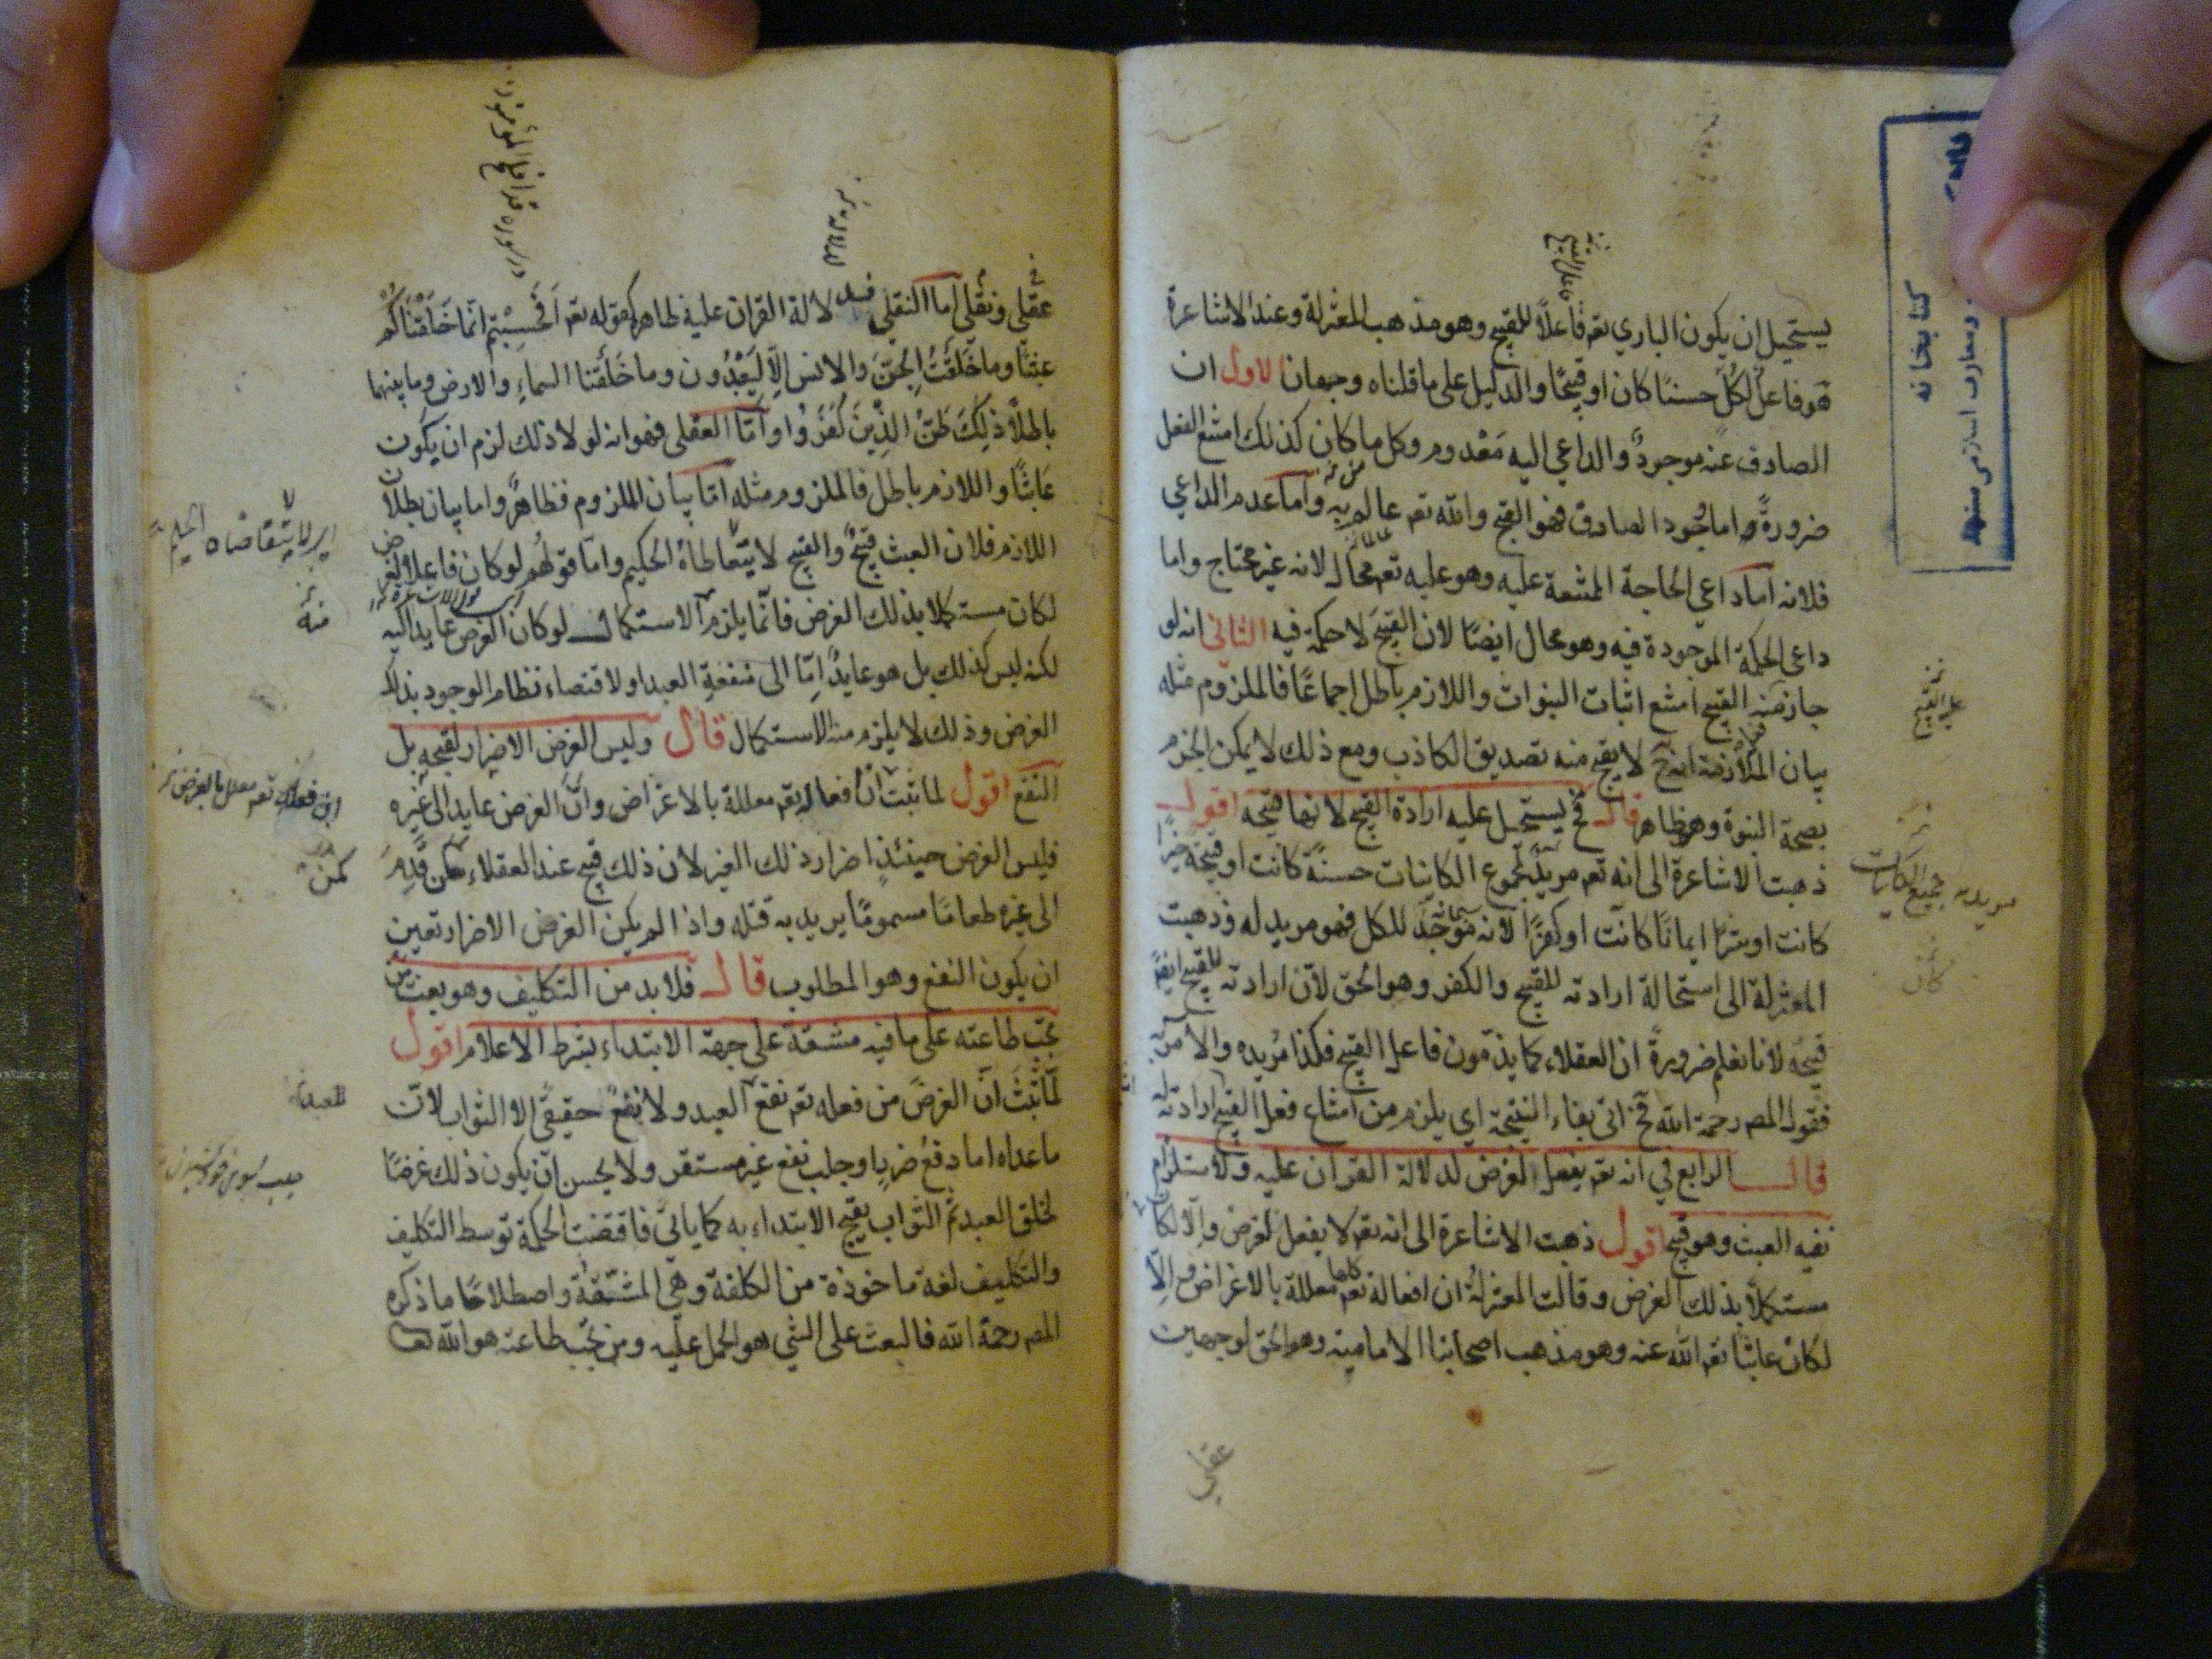 يستحيل ان يكون الباري تعم فاعلاً للقبيح وهو مذهب المعتزلة وعند الاشاعرة
هو فاعل لكل حسنًا كان او قبيحًا والدليل على ما قلناه وجهان الاول ان
الصارف عنه موجودٌ والداعي اليه مَعْدوم وكل ما كان كذلك امتنع الفعل
ضرورةً واما وجود الصارف فهو القبح والله تعم عالم به واما عدم الداعي
فلانه اما داعي الحاجة الممتنعة عليه وهو عليه تعم محال لانه غير محتاج واما
داعي الحكمة الموجودة فيه وهو محال ايضًا لان القبيح لا حكمة فيه الثاني انه لو
جاز منه القبيح امتنع اثبات النبوات واللازم باطل اجماعًا فالملزوم مثله
بيان الملازمة انه ح لا يقبح منه تصديق الكاذب ومع ذلك لا يمكن الجزم
بصحة النبوة وهو ظاهر قال فح يستحيل عليه ارادة القبيح لانها قبيحه اقول
ذهبت الاشاعرة الى انه تعم مريدٌ لمجموع الكائنات حسنةً كانت او قبيحة خيرًا
كانت او شرًا ايمانًا كانت او كفرًا لانه موجد للكل فهو مريد له وذهبت
المعتزلة الى استحالة ارادته للقبيح والكفر وهو الحق لان ارادته للقبيح ايضً
قبيحه لانا نعلم ضرورةً ان العقلاء كما يذمون فاعل القبيح فكذا مُريده والامر به
فقول المص رحمة الله فح اتى بفاء النتيجة اي يلزم من امتناع فعل القبيح ارادته
قال الرابع في انه تعم يفعل لغرض لدلالة القران عليه ولاستلزام
نفيه العبث وهو قبيح اقول ذهبت الاشاعرة الى انه تعم لا يفعل لغرض والا لكان
مستكملاً بذلك الغرض وقالت المعتزلة ان افعاله تعم كلها معللة بالاغراض والّا
لكان عابثًا تعم الله عنه وهو مذهب اصحابنا الامامية وهو الحق لوجهين
عقلي
عقلي ونقلي اما النقلي فدلالة القران عليه ظاهر كقوله تعم اَفَحَسِبْتم انّما خَلَقْنَاكُمْ
عبثًا وما خَلَقْتُ الجنَّ والانس الّا ليَعْبُدُون وما خَلَقْنا السماءِ والارض وما بينهما
باطلاً ذلِكَ ظنّ الذّينَ كَفَرُوا وامّا العقلى فهو انه لولا ذلك لزم ان يكون
عَابثًا واللازم باطل فالملزوم مثله امّا بيان الملزوم فظاهرٌ واما بيان بطلان
اللازم فلان العبث قبيحٌ والقبيح لا يتعاطاه الحكيم واما قولُهُم لو كان فاعلا لغرض
لكان مستكملا بذلك الغرض فانّما يلزم الاستكمال لو كان الغرض عايدا اليه
لكنه ليس كذلك بل هو عايدٌ امّا الى منفعةِ العبد او لاقتضاء نظام الوجود بذلك
الغرض وذلك لا يلزم منه الاستكمال قال وليس الغرض الاضرار لقبحه بل
النفع اقول لما ثبت انّ أفعاله تعم معللة بالاغراض وانّ الغرض عايد الى غيره
فليس الغرض حينئذٍ اضرار ذلك الغير لان ذلك قبيح عند العقلاء كمن قدّم
الى غيره طعامًا مسمومًا يريد به قتله واذا لم يكن الغرض الاضرار تعين
ان يكون النفع وهو المطلوب قال فلا بد من التكليف وهو بعث من
تجب طاعته على ما فيه مشقة على جهة الابتداء بشرط الاعلام اقول
لمّا ثبتَ انّ الغرضَ من فعله تعم نفع العبد ولا نفعَ حقيقىّ الا الثواب لانّ
ما عداه اما دفعُ ضررٍ او جلب نفع غير مستقر ولا يحسن ان يكون ذلك غرضًا
لخلق العبد ثم الثواب يقبح الابتداء به كما ياتي فاقتضت الحكمة توسط التكليف
والتكليف لغة ماخوذة من الكلفة وهي المشقةُ واصطلاحًا ما ذكره
المص رحمة الله فالبعث على الشئ هو الحمل عليه ومن تجب طاعته هو الله تعا
كتابخانه